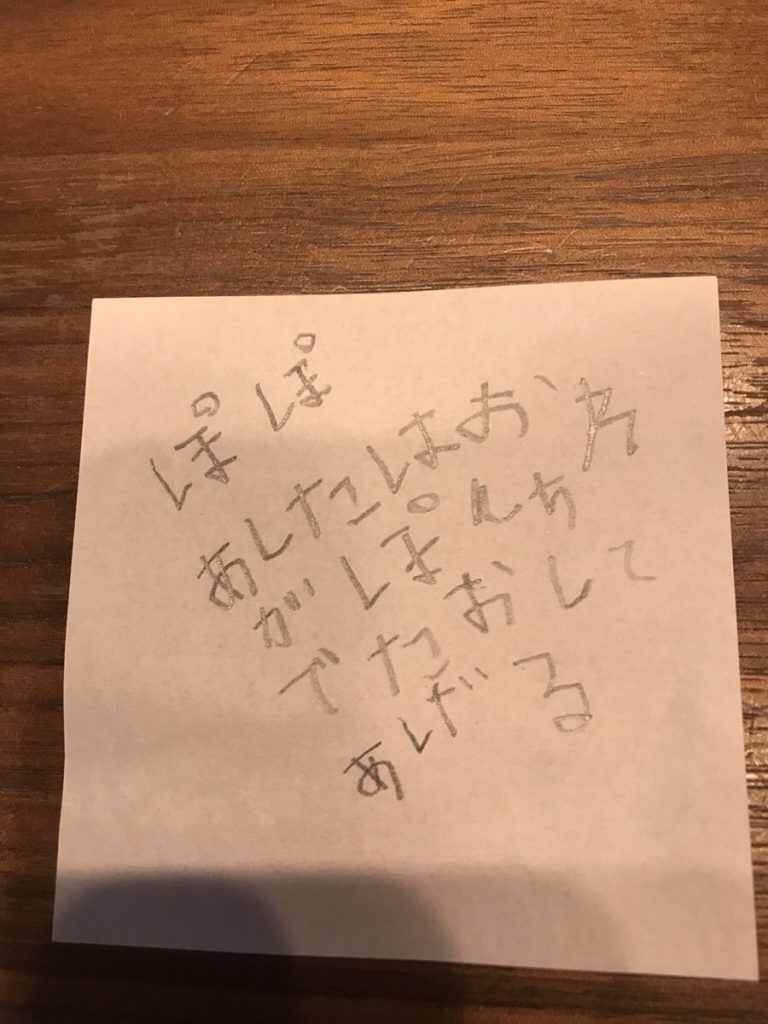 ぽぽ
あしたはおれ
がぱんち
でたおして
あげる